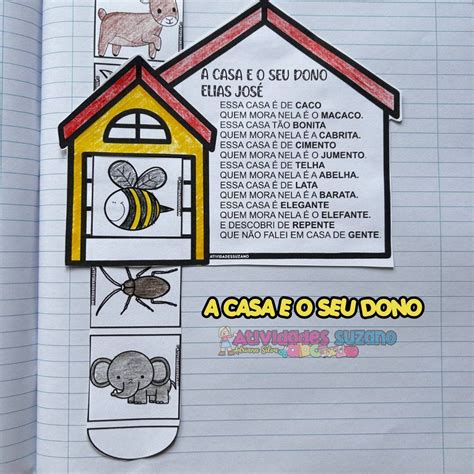 A CASA E O SEU DONO
ELIAS JOSÉ
ESSA CASA É DE CACO
QUEM MORA NELA É O MACACO.
ESSA CASA TÃO BONITA
QUEM MORA NELA É A CABRITA.
ESSA CASA É DE CIMENTO
QUEM MORA NELA É O JUMENTO.
ESSA CASA É DE TELHA
QUEM MORA NELA É A ABELHA.
ESSA CASA É DE LATA
QUEM MORA NELA É A BARATA.
ESSA CASA É ELEGANTE
QUEM MORA NELA É O ELEFANTE.
E DESCOBRI DE REPENTE
QUE NÃO FALEI EM CASA DE GENTE.
ATIVIDADESSUZANO
A CASA E O SEU DONO
Atividades Suzano
Adriana Silva